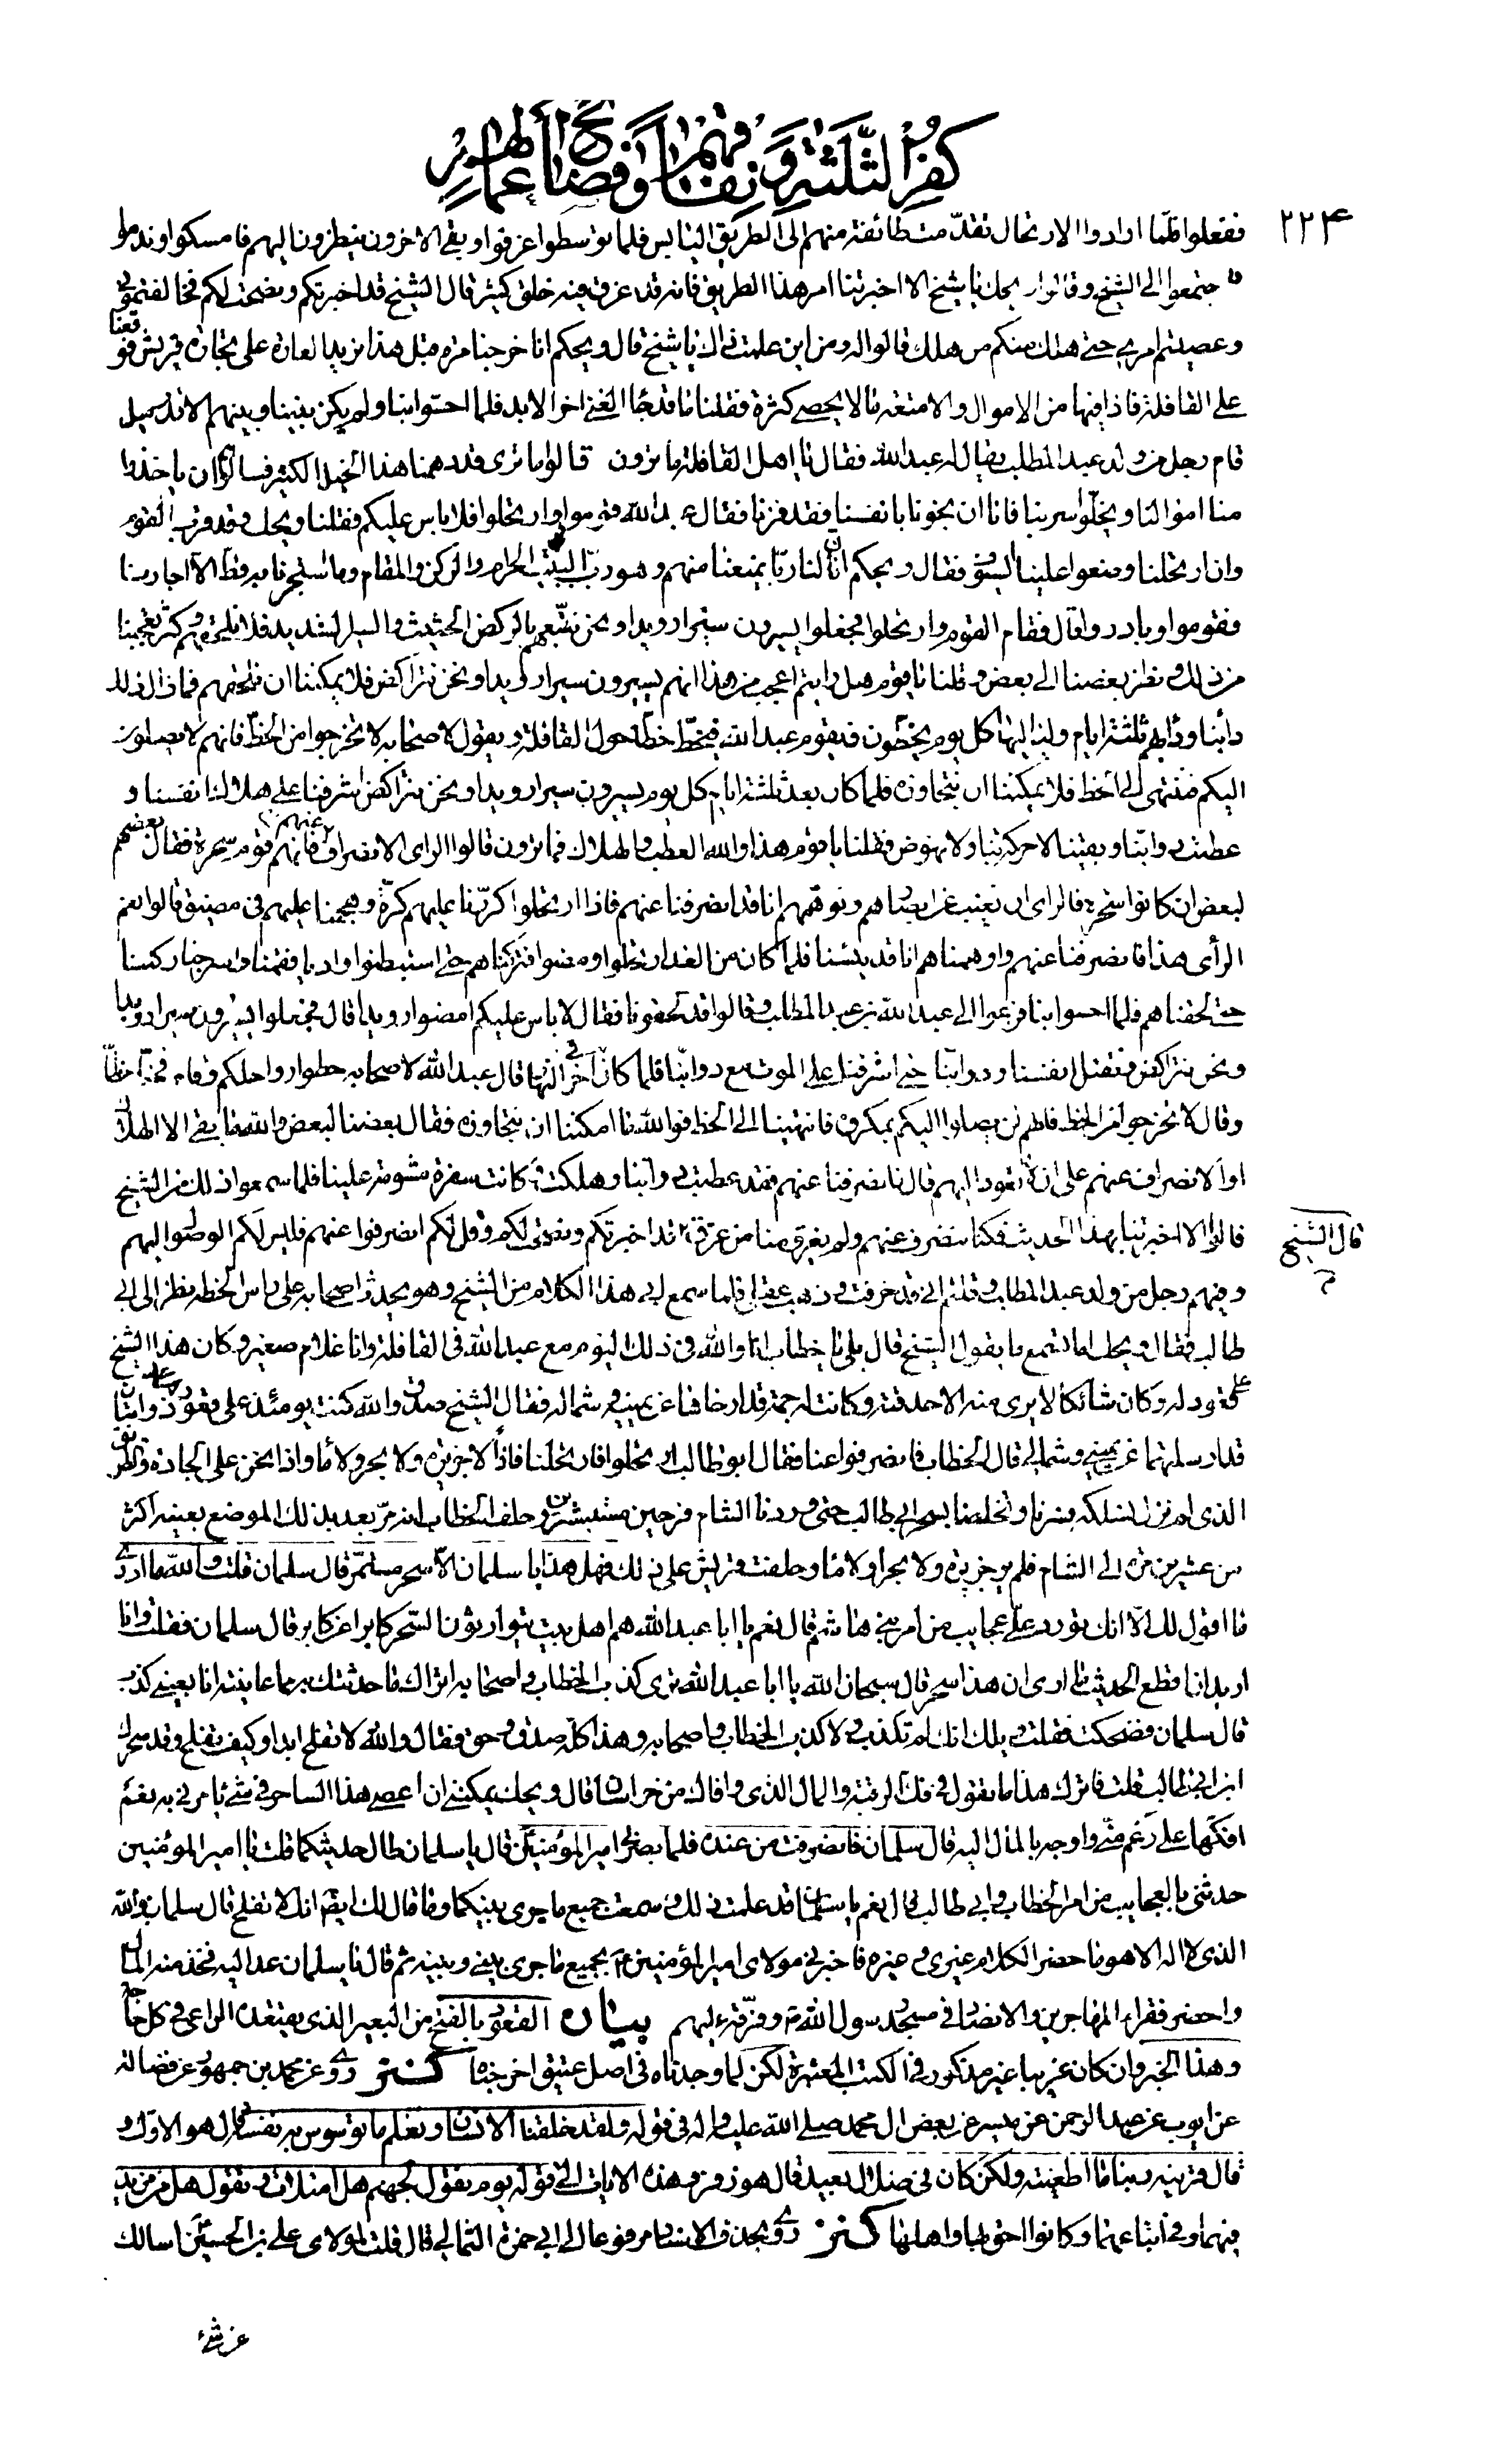 كفر الثلثة ونفاقهم وفضائح أعمالهم
٢٢۴
ففعلوا فلما ارادوا الارتحال تقدمت طائفة منهم الى الطريق اليابس فلما توسطوا غرقوا وبقى الاخرون ينظرون اليهم فامسكوا وندموا
فاجتمعوا الى الشيخ وقالوا ويحك يا شيخ الا اخبرتنا امر هذا الطريق فانه قد غرق فيه خلق كثير قال الشيخ قد اخبرتكم ونصحت لكم فخالفتمونى
وعصيتم امرى حتى هلك منكم من هلك قالوا له ومن اين علمت ذاك يا شيخ قال ويحكم انا خرجنا مرة قبل هذا نريد الغارة على تجارة قريش فوقعنا
على القافلة فاذا فيها من الاموال والامتعة ما لا يحصى كثرة فقلنا قد جاء الغنى اخر الابد فلما احسوا بنا ولم يكن بيننا وبينهم الا قدر ميل
قام رجل من ولد عبد المطلب يقال له عبد الله فقال يا اهل القافلة ما ترون قالوا ما ترى قد دهمنا هذا الخيل الكثير فسالوهم ان ياخذوا
منا اموالنا ويخلوا سربنا فانا ان نجونا بانفسنا فقد فزنا فقال عبد الله قوموا وارتحلوا فلا باس عليكم فقلنا ويحك وقد قرب القوم
وان ارتحلنا وضعوا علينا السيوف فقال ويحكم ان لنا ربا يمنعنا منهم وهو رب البيت الحرام والركن والمقام وما استجرنا به قط الا اجارنا
فقوموا وبادروا قال فقام القوم وارتحلوا فجعلوا يسيرون سيرا رويدا ونحن نتبعهم بالركض الحثيث والسير الشديد فلا نلحقهم وكثر تعجبنا
من ذلك ونظر بعضنا الى بعض وقلنا يا قوم هل رايتم اعجب من هذا انهم يسيرون سيرا رويدا ونحن نتراكض فلا يمكننا ان نلحقهم فما زال ذلك
دأبنا ودأبهم ثلثة ايام وليالها كل يوم يخطون فيقوم عبد الله فيخط خطا حول القافلة ويقول لاصحابه لا تخرجوا من الخط فانهم لا يصلون
اليكم فننتهى الى الخط فلا يمكننا ان نتجاوزه فلما كان بعد ثلثة ايام كل يوم يسيرون سيرا رويدا ونحن نتراكض اشرفنا على هلاك انفسنا و
عطبت دوابنا وبقينا لا حركة بنا ولا نهوض فقلنا يا قوم هذا والله العطب والهلاك فما ترون قالوا الراى الانصراف عنهم فانهم قوم سحرة فقال بعضهم
لبعض ان كانوا سحرة فالراى ان نغيب عن ابصارهم ونوهمهم انا قد انصرفنا عنهم فاذا ارتحلوا كررنا عليهم كرة وهجمنا عليهم فى مضيق قالوا نعم
الرأى هذا فانصرفنا عنهم واوهمناهم انا قد يئسنا فلما كان من الغد ارتحلوا ومضوا فتركناهم حتى استبطنوا واديا فقمنا واسرجنا وركبنا
حتى لحقناهم فلما احسوا بنا فزعوا الى عبد الله بن عبد المطلب وقالوا قد لحقونا فقال لا باس عليكم امضوا رويدا قال فجعلوا يسيرون سيرا رويدا
ونحن نتراكض ونقتل انفسنا ودوابنا حتى اشرفنا على الموت مع دوابنا فلما كان فى آخر النهار قال عبد الله لاصحابه حطوا رواحلكم وقام فخط خطا
وقال لا تخرجوا من الخط فانهم لن يصلوا اليكم بمكروه فانتهينا الى الخط فوالله ما امكننا ان نتجاوزه فقال بعضنا لبعض والله ما بقى الا الهلاك
او الانصراف عنهم على ان لا نعود اليهم قال فانصرفنا عنهم فقد عطبت دوابنا وهلكت وكانت سفرة مشومة علينا فلما سمعوا ذلك من الشيخ
قالوا الا اخبرتنا بهذا الحديث فكنا ننصرف عنهم ولم يغرق منا من غرق قال الشيخ قد اخبرتكم ونصحت لكم وقلت لكم انصرفوا عنهم فليس لكم الوصول اليهم
وفيهم رجل من ولد عبد المطلب وقلتم انى قد خرفت وذهب عقلى فلما سمع ابى هذا الكلام من الشيخ وهو يحدث اصحابه على راس الخطة نظر الى ابى
طالب فقال ويحك اما تسمع ما يقول الشيخ قال بلى يا خطاب انا والله فى ذلك اليوم مع عبد الله فى القافلة وانا غلام صغير وكان هذا الشيخ
على قعود له وكان شائكا لا يرى منه الا حدقته وكانت له جمة قد ارخاها عن يمينه وشماله فقال الشيخ صدق والله كنت يومئذ على قعود على ذوابتان
قد ارسلتهما عن يمينى وشمالى قال الخطاب فانصرفوا عنا فقال ابو طالب ارتحلوا فارتحلنا فاذا لا جزيرة ولا بحر ولا ماء واذا نحن على الجادة والطريق
الذى لم نزل نسلكه فسرنا وتخلصنا بسحر ابى طالب حتى وردنا الشام فرحين مستبشرين وحلف الخطاب انه مر بعد بذلك الموضع بعينه اكثر
من عشرين مرة الى الشام فلم ير جزيرة ولا بحرا ولا ماء وحلفت قريش على ذلك فهل هذا يا سلمان الا سحر مستمر قال سلمان قلت والله ما ادرى
ما اقول لك الا انك تورد على عجايب من امر بنى هاشم قال نعم يا ابا عبد الله هم اهل بيت يتوارثون السحر كابرا عن كابر قال سلمان فقلت وانا
اريد ان اقطع الحديث ما ارى ان هذا سحر قال سبحان الله يا ابا عبد الله ترى كذب الخطاب واصحابه اتراك ما حدثتك به مما عاينته انا بعينى كذب
قال سلمان فضحكت فقلت ويلك انك لم تكذب ولا كذب الخطاب واصحابه وهذا كله صدق وحق فقال والله لا تفلح ابدا وكيف تفلح وقد سحرك
ابن ابى طالب قلت فاترك هذا ما تقول فى فك الرقبة والمال الذى وافاك من خراسان قال ويحك يمكننى ان اعصى هذا الساحر فى شىء يامرنى به نعم
افكها على رغم منى واوجه بالمال اليه قال سلمان فانصرفت من عنده فلما بصر بى امير المؤمنين قال يا سلمان طال حديثكما قلت يا امير المؤمنين
حدثنى بالعجايب من امر الخطاب وابى طالب قال نعم يا سلمان قد علمت ذلك وسمعت جميع ما جرى بينكما وما قال لك ايضا انك لا تفلح قال سلمان والله
الذى لا اله الا هو ما حضر الكلام غيرى وغيره فاخبرنى مولاى امير المؤمنين ع بجميع ما جرى بينى وبينه ثم قال يا سلمان عد اليه فخذ منه المال
واحضر فقراء المهاجرين والانصار فى مسجد رسول الله ص وفرقه اليهم بيان القعود بالفتح من البعير الذى يقتعده الراعى فى كل حاجة
وهذا الخبر وان كان غريبا غير مذكور فى الكتب المعتبرة لكن لما وجدناه فى اصل عتيق اخرجناه كنز روى عن محمد بن جمهور عن فضالة
عن ايوب عن عبد الرحمن عن ميسر عن بعض ال محمد صلى الله عليه واله فى قوله ولقد خلقنا الانسان ونعلم ما توسوس به نفسه قال هو الاول و
قال قرينه ربنا ما اطغيته ولكن كان فى ضلال بعيد قال هو زفر وهذه الايات الى قوله يوم نقول لجهنم هل امتلات وتقول هل من مزيد
فيهما وفى اتباعهما وكانوا احق بها واهلها كنز روى بحذف الاسناد مرفوعا الى ابى حمزة الثمالى قال قلت لمولاى على بن الحسين اسالك
عن شىء